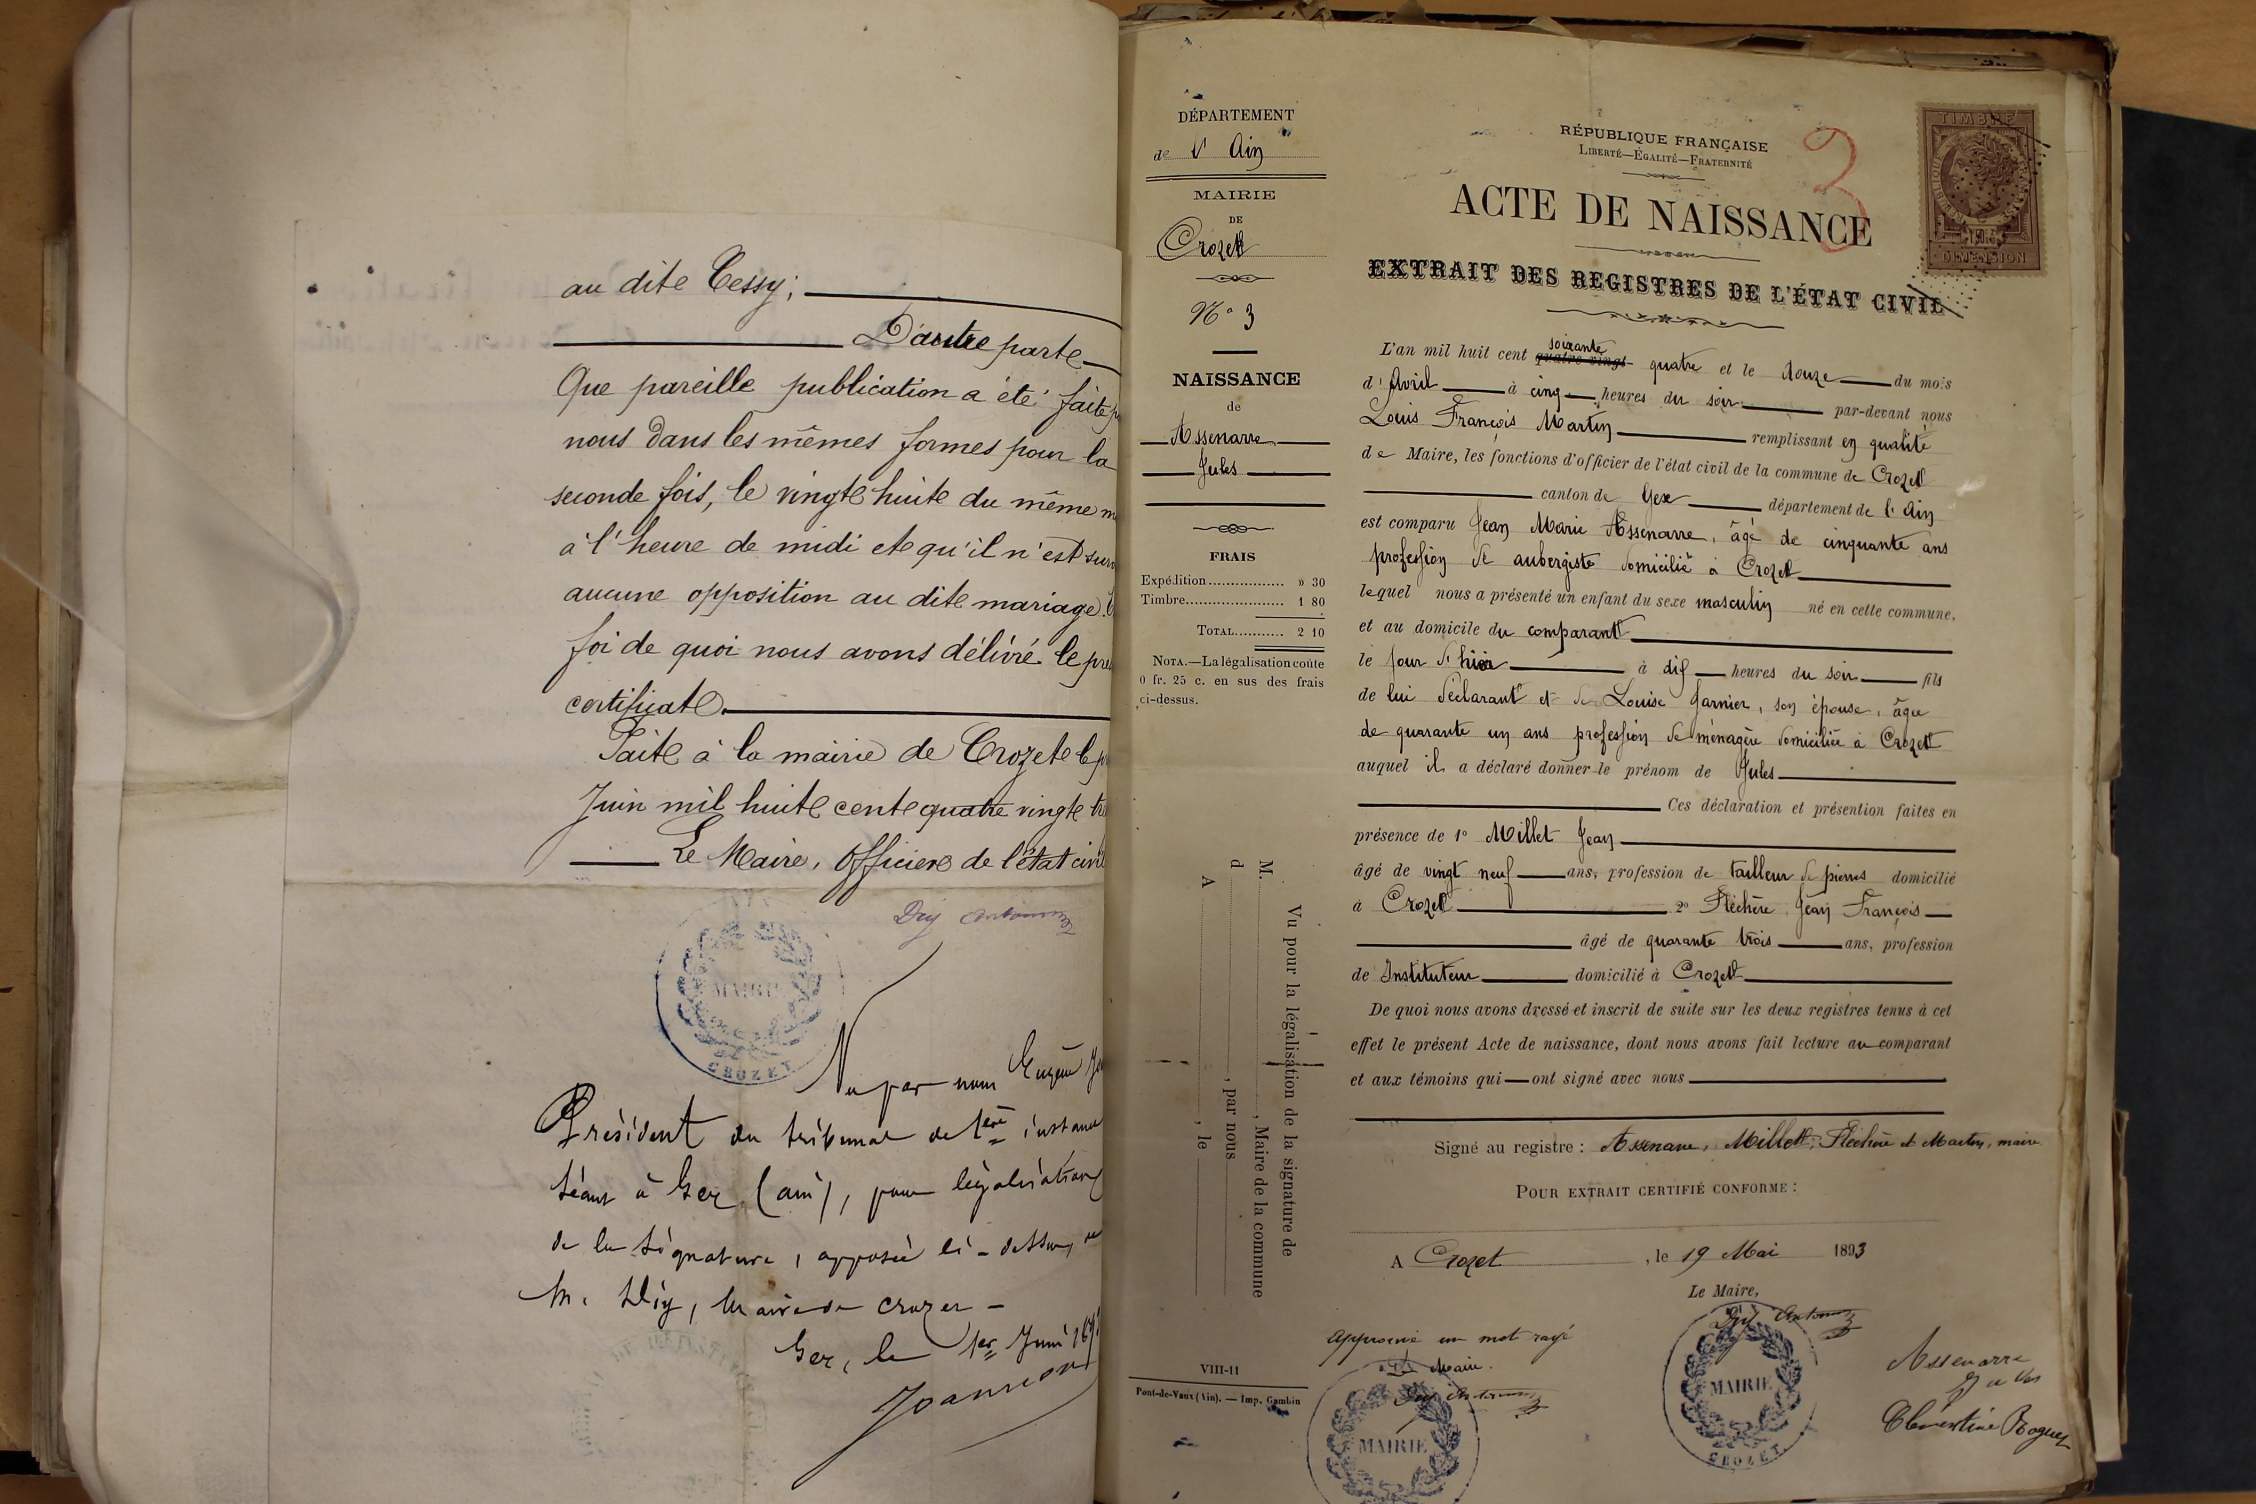 au dite Cessy;
D'autre parte
Que pareille publication a été faite
nous dans les mêmes formes pour la
seconde fois, le vingte huite du même
à l'heure de midi ete qu'il n'est
aucune opposition au dite mariage.
foi de quoi nous avons délivré le
certificate.
Faite à la mairie de Crozete le
Juin mil huite cente quatre vingte
Le Maire, Officiere de l'état civil
MAIRIE
CROZET
Vu par nous Eugène
Président du tribunal de 1ère instance
séant à Gex (ain), pour légalisation
de la signature, apposée ci-dessus, de
M. Diy, Maire de Crozet -
Gex, le 1er Juin
DÉPARTEMENT
de l'Ain
MAIRIE
DE
Crozet
No 3
NAISSANCE
de
Assenarre
Jules
FRAIS
Expédition ........ » 30
Timbre ........ 1 80
TOTAL ........ 2 10
NOTA.—La légalisation coûte
0 fr. 25 c. en sus des frais
ci-dessus.
Vu pour la légalisation de la signature de
M. , Maire de la commune
d , par nous
A , le
VIII-11
Pont-de-Vaux (Ain). — Imp. Gambin
RÉPUBLIQUE FRANÇAISE
LIBERTÉ—ÉGALITÉ—FRATERNITÉ
3
TIMBRE
DIMENSION
ACTE DE NAISSANCE
EXTRAIT DES REGISTRES DE L'ÉTAT CIVIL
soixante
L'an mil huit cent quatre-vingt- quatre et le douze du mois
d'Avril à cinq heures du soir par-devant nous
Louis François Martin remplissant en qualité
de Maire, les fonctions d'officier de l'état civil de la commune de Crozet
canton de Gex département de l'Ain
est comparu Jean Marie Assenarre, âgé de cinquante ans
profession de aubergiste domicilié à Crozet
lequel nous a présenté un enfant du sexe masculin né en cette commune,
et au domicile du comparant
le jour d'hier à dix heures du soir fils
de lui déclarant et de Louise Garnier, son épouse, âgée
de quarante un ans profession de ménagère domiciliée à Crozet
auquel il a déclaré donner le prénom de Jules
Ces déclaration et présention faites en
présence de 1º Millet Jean
âgé de vingt neuf ans, profession de tailleur de pierres domicilié
à Crozet 2º Fléchère Jean François
âgé de quarante trois ans, profession
de Instituteur domicilié à Crozet
De quoi nous avons dressé et inscrit de suite sur les deux registres tenus à cet
effet le présent Acte de naissance, dont nous avons fait lecture au comparant
et aux témoins qui ont signé avec nous
Signé au registre : Assenarre, Millet, Fléchère et Martin, maire
POUR EXTRAIT CERTIFIÉ CONFORME :
A Crozet , le 19 Mai 1893
Le Maire,
MAIRIE
CROZET
Approuvé un mot rayé
Le Maire.
MAIRIE
Assenarre
Jules
Clementine